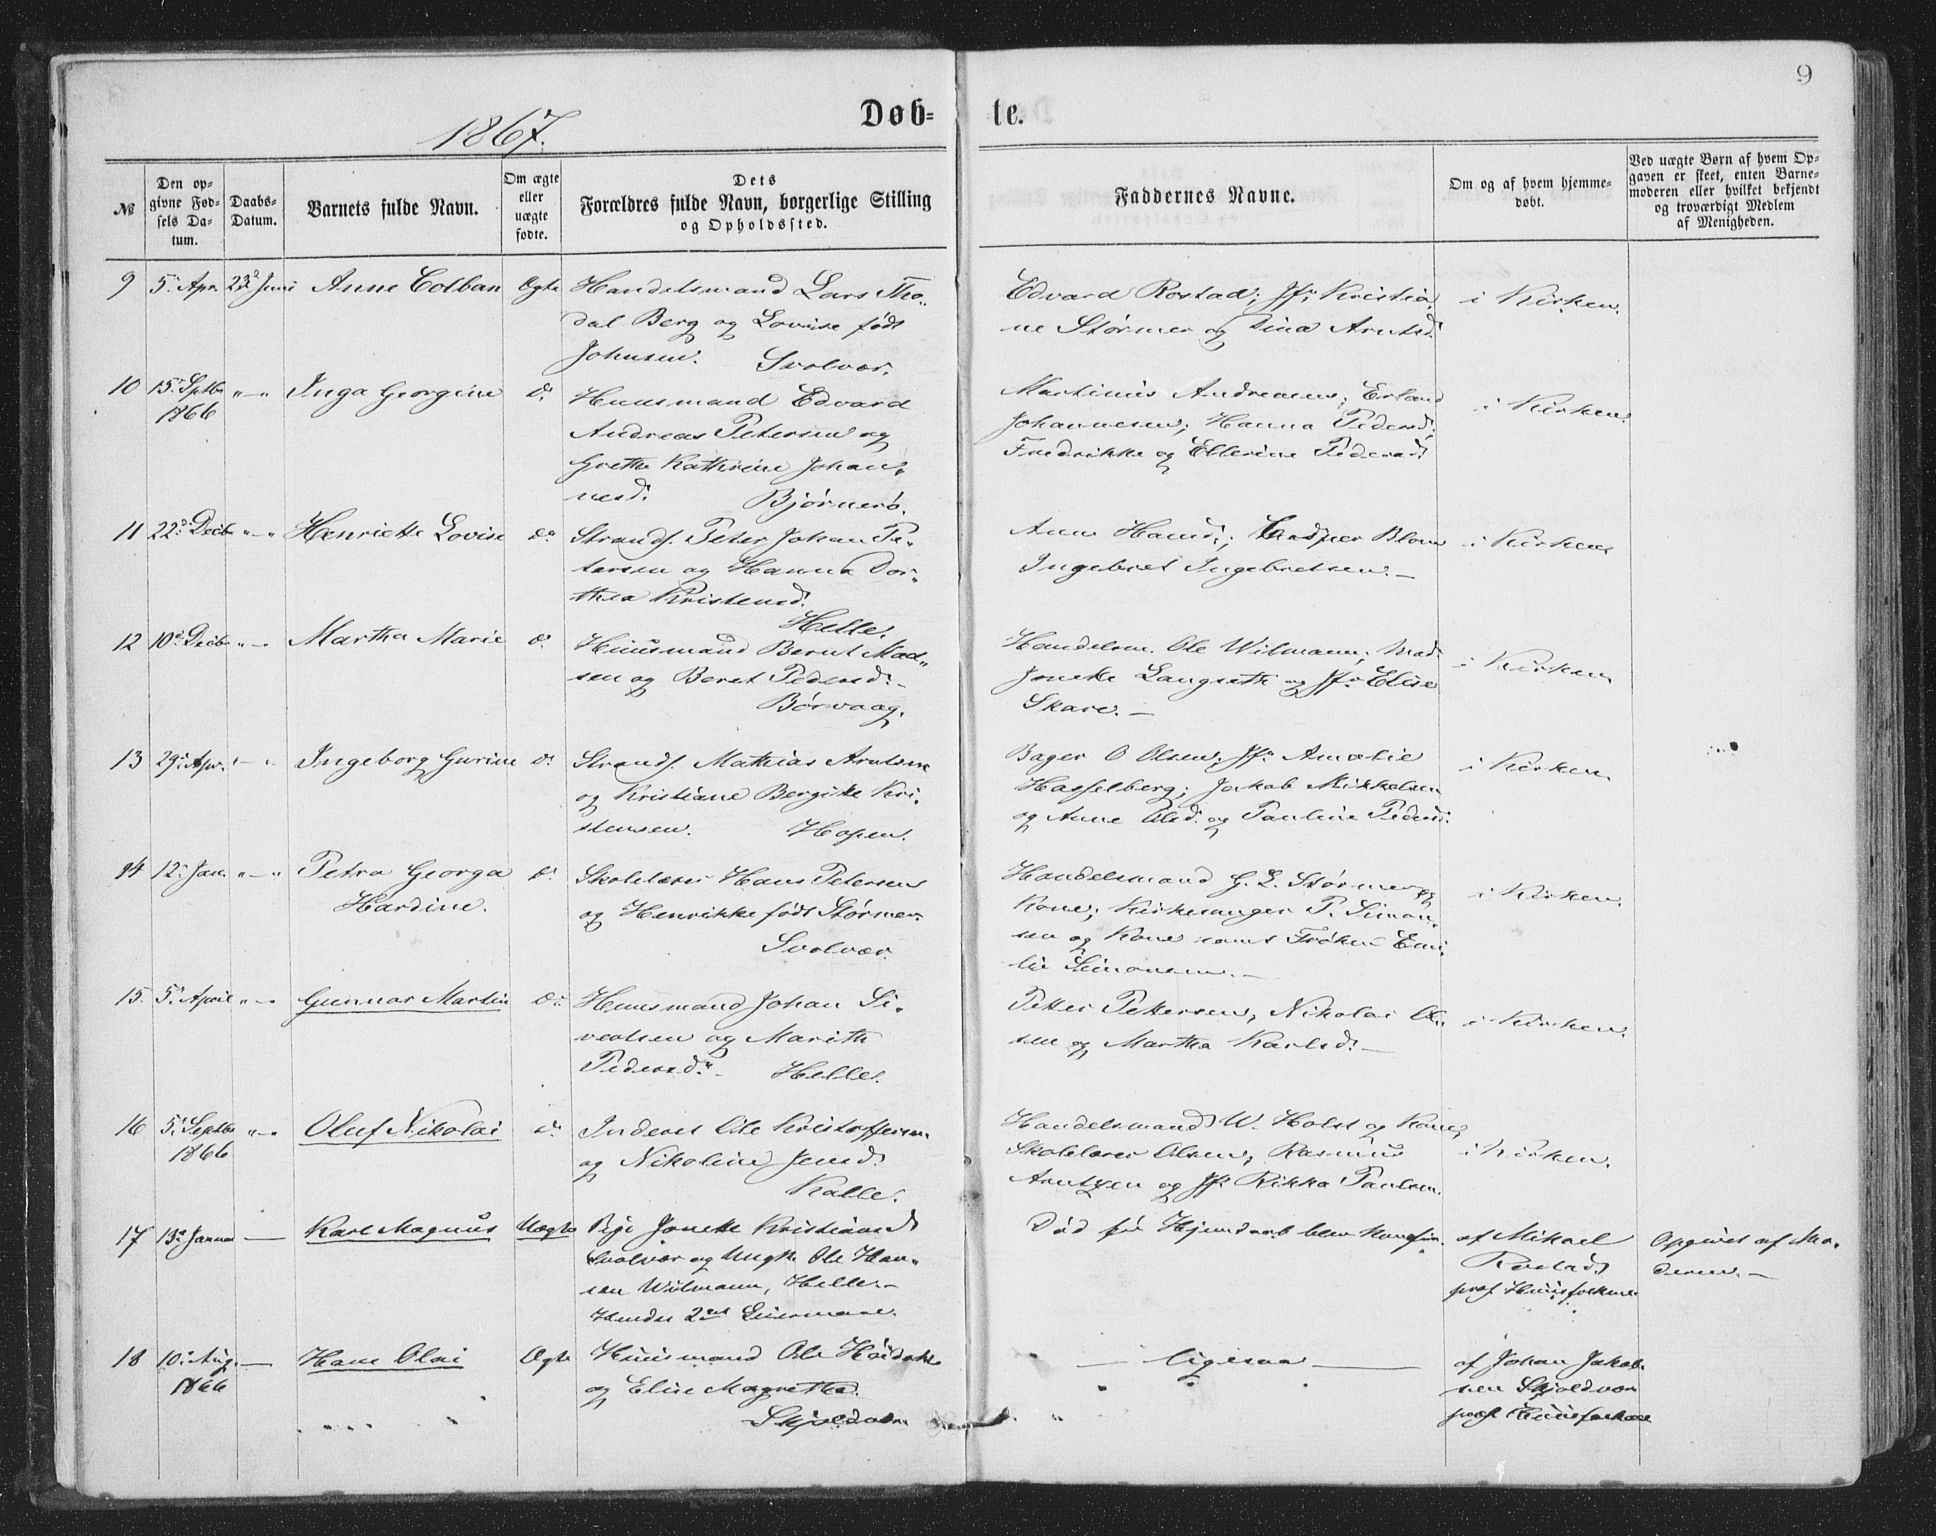 9
1867.
Døb- te.
№
Den op-
givne Fød-
sels Da-
tum.
Daabs-
Datum.
Barnets fulde Navn.
Om ægte
eller
uægte
fødte.
Dets
Forældres fulde Navn, borgerlige Stilling
og Opholdssted.
Faddernes Navne.
Om og af hvem hjemme-
døbt.
Ved uægte Børn af hvem Op-
gaven er skeet, enten Barne-
moderen eller hvilket bekjendt
og troværdigt Medlem
af Menigheden.
9 5. Apr. 23d Juni Anne Colban Ægte Handelsmand Lars Tho-
dal Berg og Lovise født
Johnsen. Svolvær.
Edvard Rostad; Jfr Kristia-
ne Størmer og Sina Arntsd.
i Kirken.
10 15. Septbr
1866 " - " Inga Georgine do Huusmand Edvard
Andreas Petersen og
Grethe Kathrine Johan-
nesd. Bjørnerö.
Martinus Andreasen; Erland
Johannesen; Hanna Pedersd.
Fredrikke og Ellerine Pedersd.
i Kirken.
11 22d Decb " - " Henriette Lovise do Strands. Peter Johan Pe-
tersen og Hanna Dor-
thea Kristensd.
Helle.
Ane Hansd.; Casper Blom
Ingebret Ingebretsen. -
i Kirken
12 10d Decb " - " Martha Marie do Huusmand Bernt Mad-
sen og Beret Pedersd. -
Børvaag.
Handelsm. Ole Wilmann; Mad.
Joneke Langseth og Jfr Elise
Skare. -
i Kirken
13 29. Apr. " - " Ingeborg Gurine do Strands. Mathias Arntsen
og Kristiane Bergitte Kri-
stensen. Hopen.
Bager O Olsen; Jfr Amalie
Hasselberg; Jakob Mikkelsen
og Anne Olsd. og Pauline Pedersd.
i Kirken
14 12. Jan. " - " Petra Georga
Hardine. do Skolelærer Hans Petersen
og Henrikke født Størmer
Svolvær
Handelsmand G. E. Størmer og
Kone; Kirkesanger P. Simon-
sen og Kone samt Frøken Emi-
lie Simonsen. -
i Kirken.
15. 5. April " - " Gunnar Martin do Huusmand Johan Si-
vertsen og Marith
Pedersd. - Helle.
Petter Pettersen; Nikolai Ol-
sen og Martha Karlsd. -
i Kirken.
16 5. Septbr
1866 " - " Oluf Nikolai do Inderst Ole Kristoffersen
og Nikoline Jensd.
Kalle.
Handelsmand W. Holst og Kone,
Skolelærer Olsen; Rasmus
Arntzen og Jfr Rikka Paulsen.
i Kirken.
17 13d Januar — Karl Magnus Uægte Pige Joneke Kristiansd
Svolvær og Ungk. Ole Han-
sen Wilmann, Helle. -
Hendes 2det Leiermaal.
Död för Hjemdaab blev Konfir.
af Mikael
Rostad
præs. Huusfolkene
Opgivet af Mo-
deren. -
18 10. Aug.
1866 — Hans Olai Ægte Huusmand Ole Hoidahl
og Elise Magretha.
Skjoldvær
— ligesaa —
af Johan Jakob-
sen Skjoldvær
præs. Huusfolkene